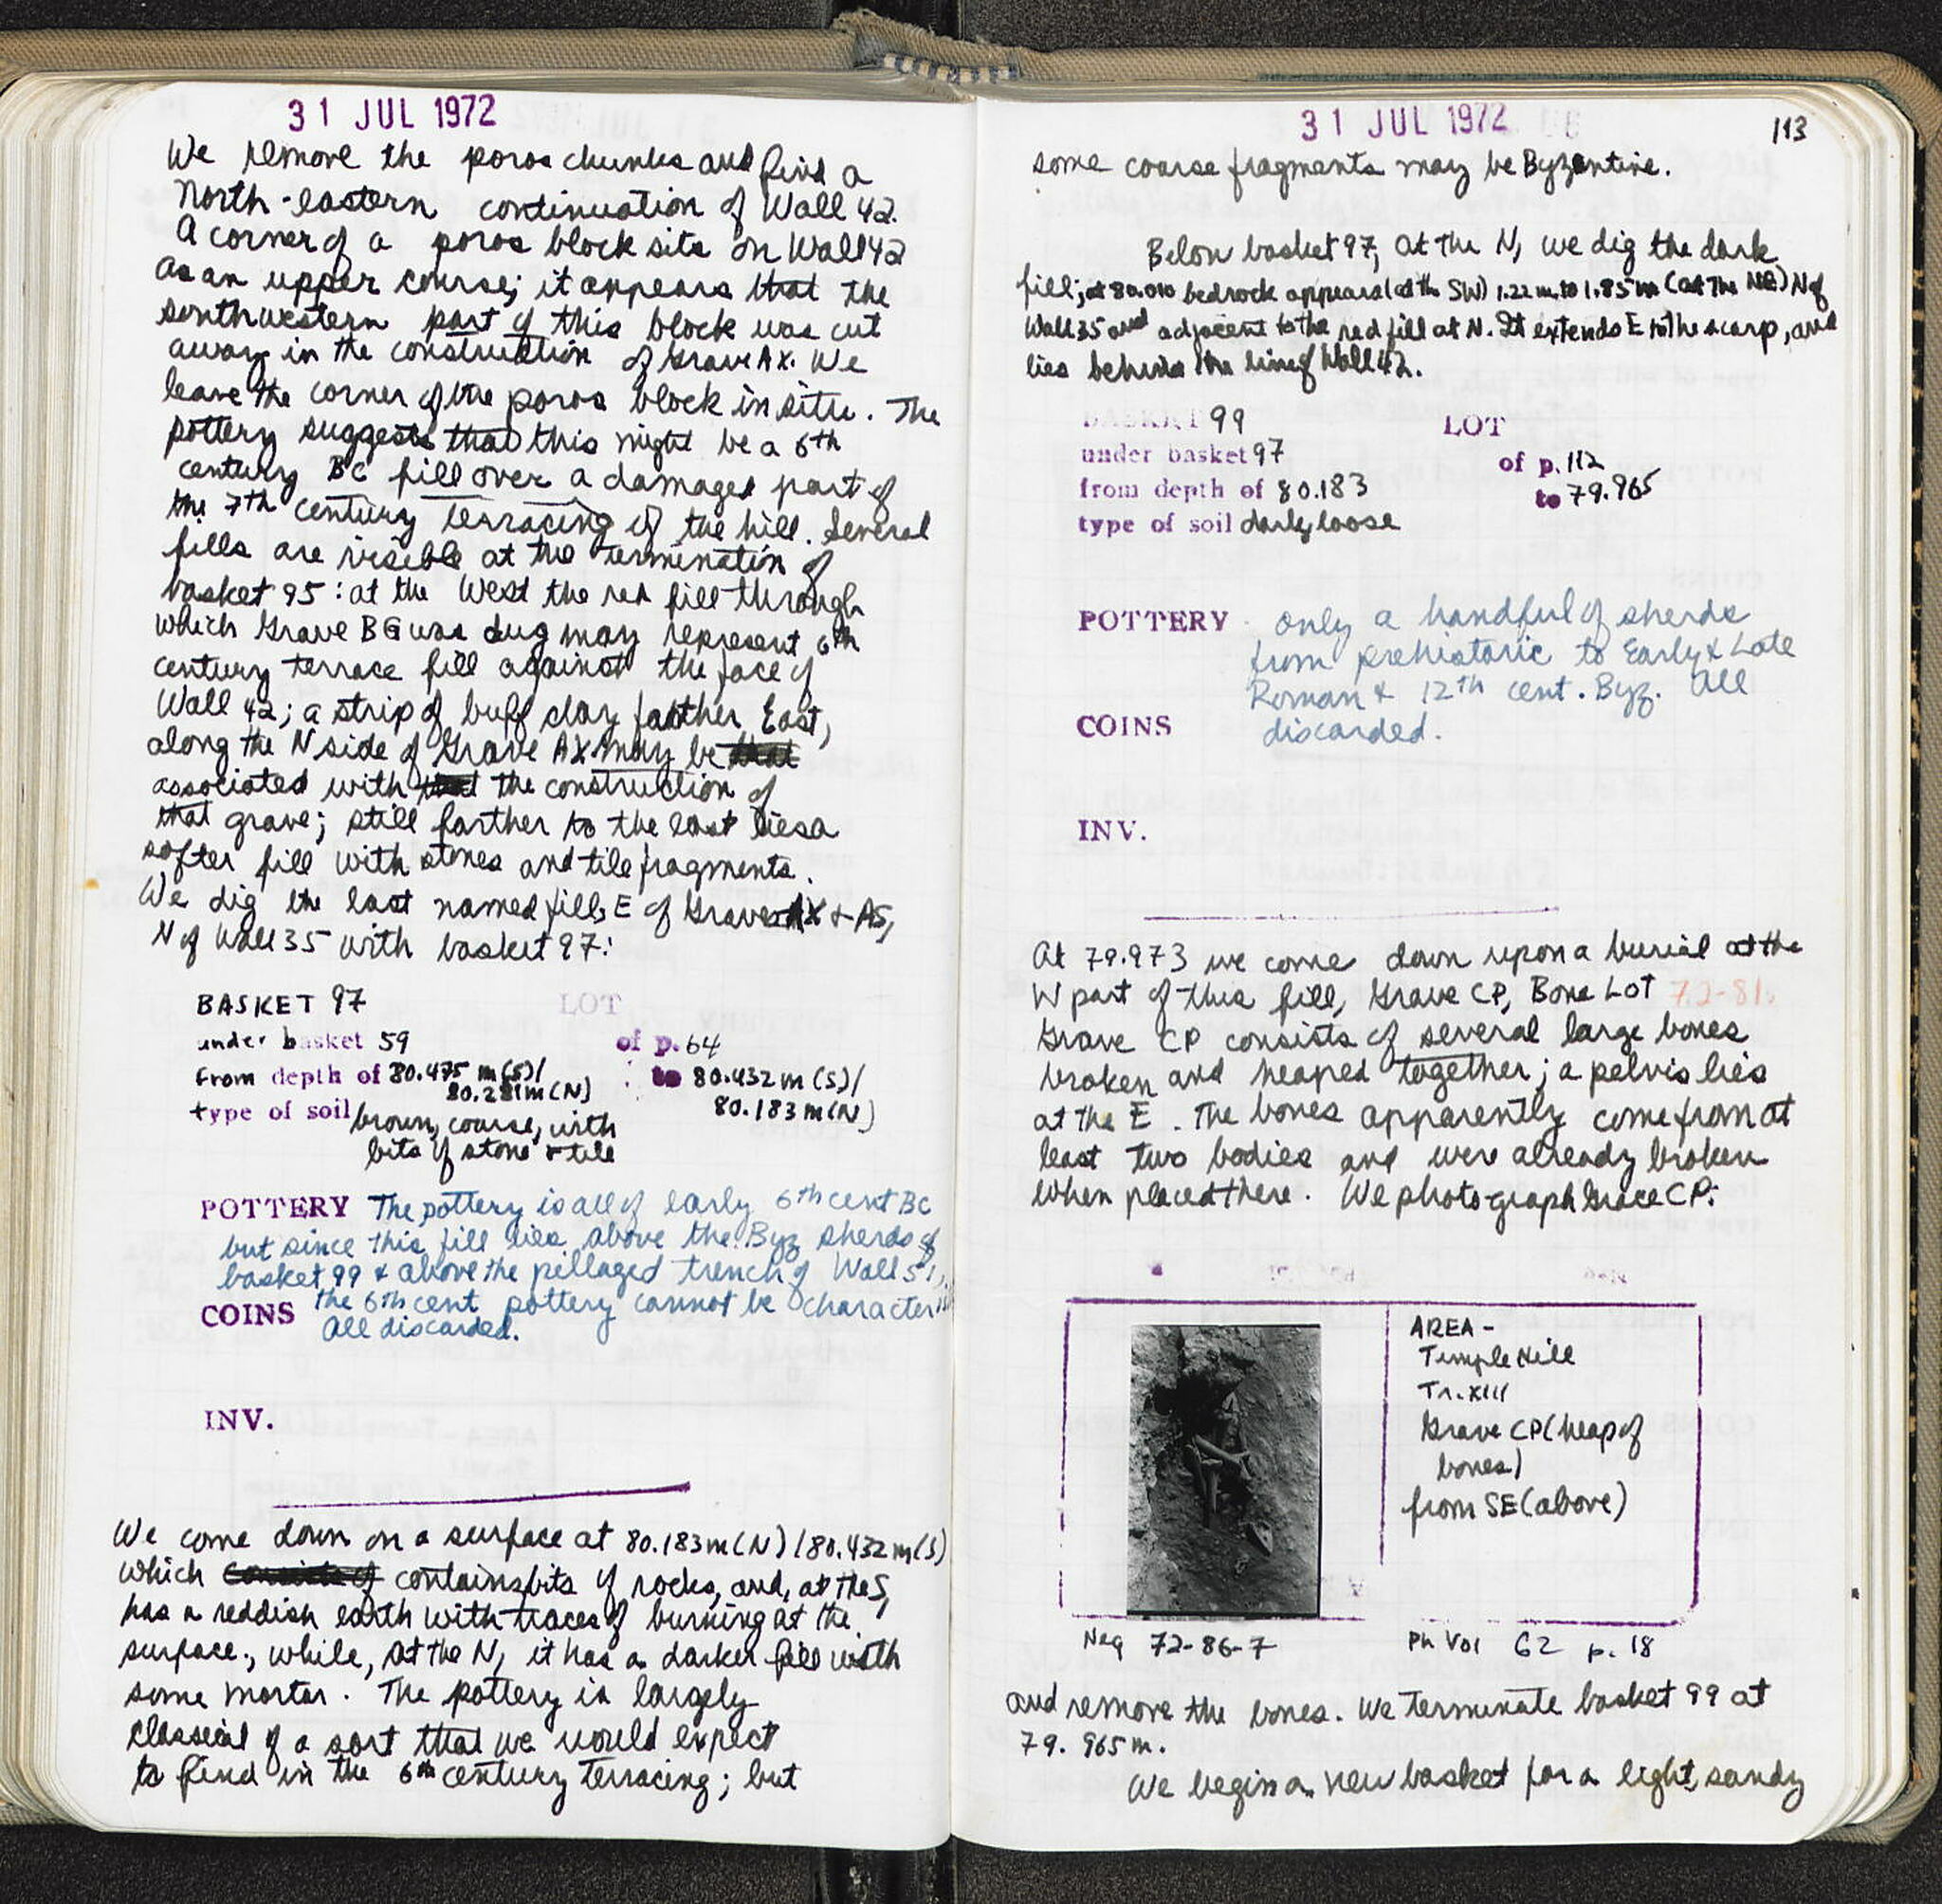 31 JUL 1972
We remove the poros chunks and find a
North-eastern continuation of Wall 42.
A corner of a poros block sits on Wall 42
as an upper course; it appears that the
southwestern part of this block was cut
away in the construction of Grave AX. We
leave the corner of the poros block in situ. The
pottery suggests that this might be a 6th
century BC fill over a damaged part of
the 7th century terracing of the hill. Several
fills are visible at the termination of
basket 95: at the West the red fill through
which Grave BG was dug may represent 6th
century terrace fill against the face of
Wall 42; a strip of buff clay farther East,
along the N side of Grave AX may be
associated with the construction of
that grave; still farther to the east lies a
softer fill with stones and tile fragments.
We dig the last named fill, E of Graves AX + AS,
N of Wall 35 with basket 97:
BASKET 97 LOT
under basket 59 of p. 64
from depth of 80.475 m (S)/ to 80.432 m (S)/
80.281m (N) 80.183 m (N)
type of soil brown, coarse, with
bits of stone + tile
POTTERY The pottery is all of early 6th cent BC
but since this fill lies above the Byz sherds of
basket 99 & above the pillaged trench of Wall 51,
the 6th cent pottery cannot be
COINS All discarded.
INV.
We come down on a surface at 80.183m (N) / 80.432 m (S)
which contains bits of rocks, and, at the S,
has a reddish earth with traces of burning at the
surface; while, at the N, it has a darker fill with
some mortar. The pottery is largely
classical of a sort that we would expect
to find in the 6th century terracing; but
31 JUL 1972 113
some coarse fragments may be Byzantine.
Below basket 97, at the N, we dig the dark
fill; at 80.010 bedrock appears (at the SW) 1.22 m. to 1.85 m (at the NE) N of
Wall 35 and adjacent to the red fill at N. It extends E to the scarp, and
lies behind the line of Wall 42.
BASKET 99 LOT
under basket 97 of p. 112
from depth of 80.183 to 79.965
type of soil dark, loose
POTTERY only a handful of sherds
from prehistoric to Early & Late
Roman & 12th cent. Byz. All
COINS discarded.
INV.
At 79.973 we come down upon a burial at the
W part of this fill, Grave CP, Bone Lot 72-81.
Grave CP consists of several large bones
broken and heaped together; a pelvis lies
at the E. The bones apparently come from at
least two bodies and were already broken
when placed there. We photograph Grave CP:
AREA -
Temple Hill
Tr. XIII
Grave CP (heap of
bones)
from SE (above)
Neg 72-86-7 Ph Vol 62 p. 18
and remove the bones. We terminate basket 99 at
79.965 m.
We begin a new basket for a light, sandy